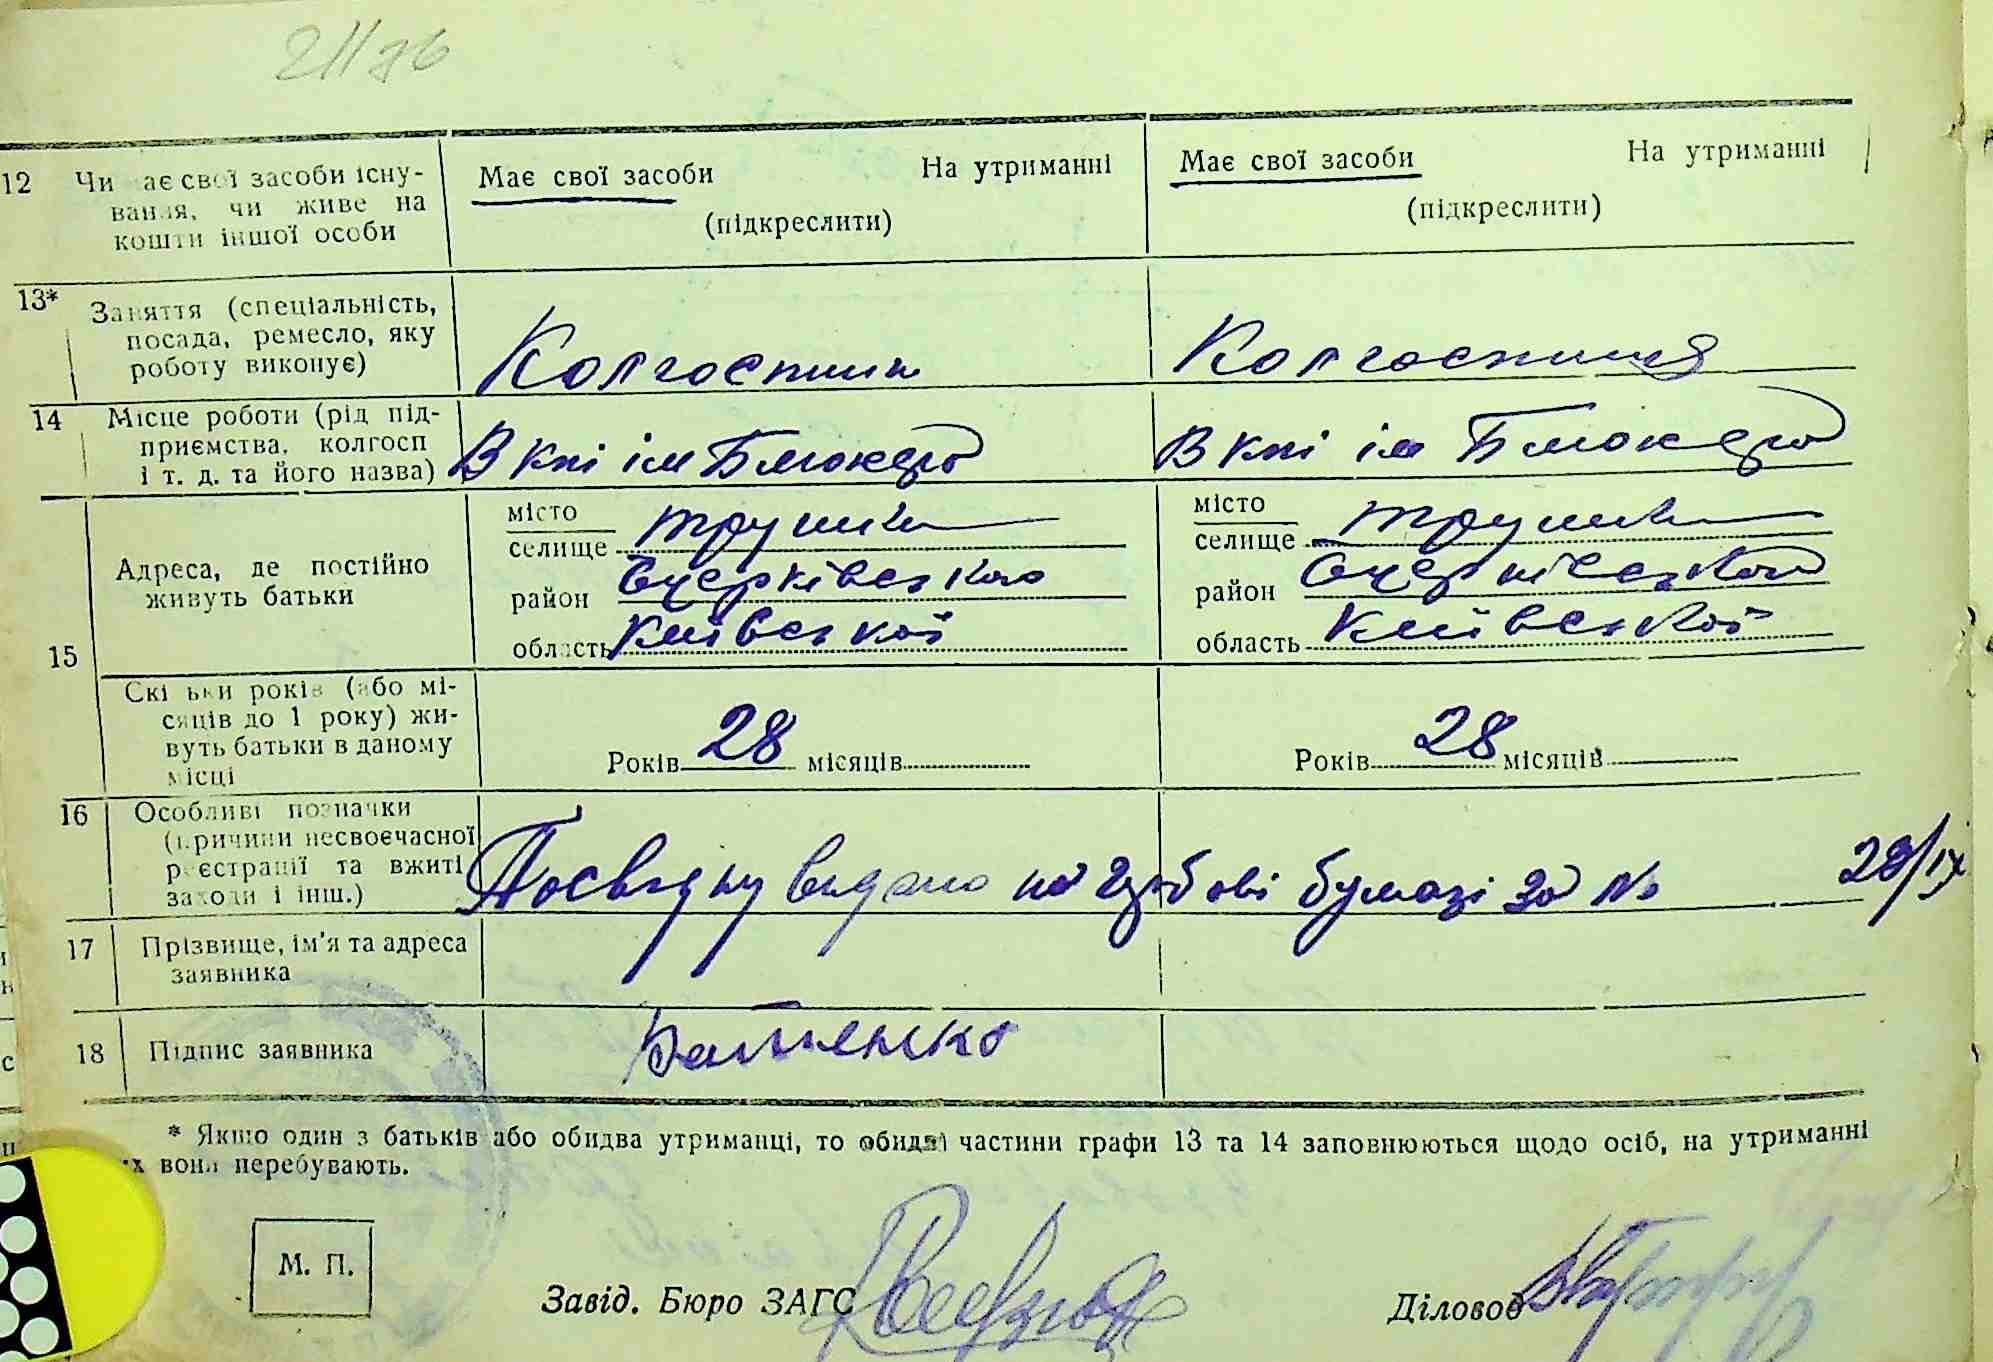 12 Чи має свої засоби існу-
вання, чи живе на
кошти іншої особи
Має свої засоби На утриманні
(підкреслити)
Має свої засоби На утриманні
(підкреслити)
13* Заняття (спеціальність,
посада, ремесло, яку
роботу виконує)
Колгоспник
Колгоспниця
14 Місце роботи (рід під-
приємства, колгосп
і т. д. та його назва)
В к-пі ім Блюхера
В к-пі ім Блюхера
15 Адреса, де постійно
живуть батьки
місто
селище Трушки
район
область Київської
місто
селище Трушки
район
область Київської
Скільки років (або мі-
сяців до 1 року) жи-
вуть батьки в даному
місці
Років 28 місяців
Років 28 місяців
16 Особливі позначки
(причини несвоєчасної
реєстрації та вжиті
заходи і інш.)
Посвідку видано на гербові бумазі за № 28/IX
17 Прізвище, ім'я та адреса
заявника
18 Підпис заявника
Батенко
* Якщо один з батьків або обидва утриманці, то обидві частини графи 13 та 14 заповнюються щодо осіб, на утриманні
их вони перебувають.
М. П.
Завід. Бюро ЗАГС
Діловод